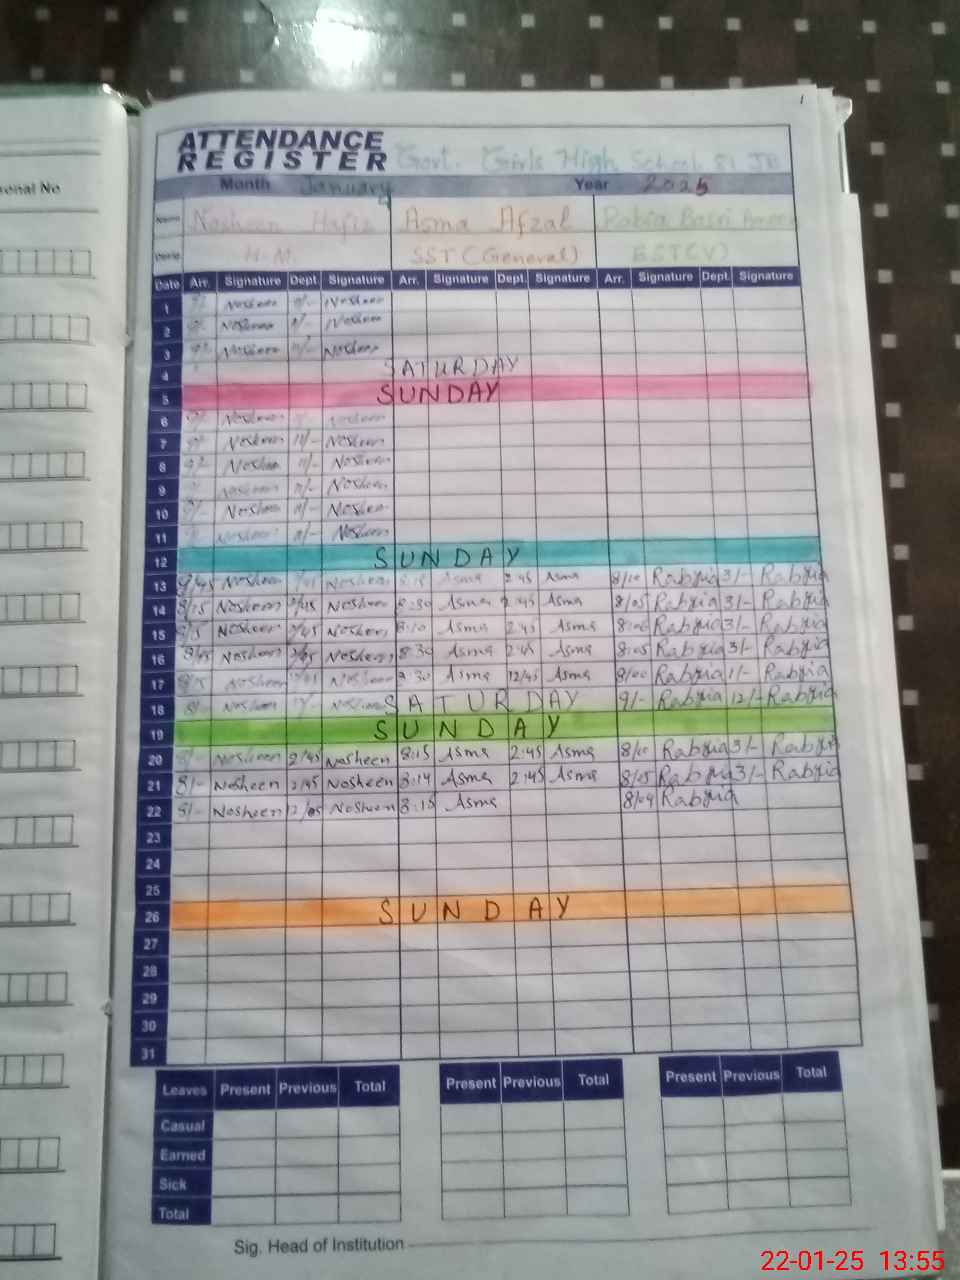 1
ATTENDANCE
REGISTER Govt. Girls High School 81 JB
onal No
Month January Year 2025
Name Nosheen Hafiz Asma Afzal Rabia Basri
H.M. SST (General) EST(V)
Date Arr. Signature Dept. Signature Arr. Signature Dept. Signature Arr. Signature Dept. Signature
1 9/- Nosheen 11/- Nosheen
2 9/- Nosheen 11/- Nosheen
3 9/- Nosheen 11/- Nosheen
4 SATURDAY
5 SUNDAY
6 9/- Nosheen Nosheen
7 9/- Nosheen 11/- Nosheen
8 9/- Nosheen 11/- Nosheen
9 Nosheen 11/- Nosheen
10 9/- Nosheen 11/- Nosheen
11 Nosheen 11/- Nosheen
12 SUNDAY
13 Nosheen Nosheen 8:15 Asma 2:45 Asma 8/10 Rabyia 3/- Rabyia
14 8/15 Nosheen 2/45 Nosheen 8:30 Asma 2:45 Asma 8/05 Rabyia 3/- Rabyia
15 Nosheen 2/45 Nosheen 8:10 Asma 2:45 Asma Rabyia 3/- Rabyia
16 Nosheen Nosheen 8:30 Asma 2:45 Asma 8:05 Rabyia 3/- Rabyia
17 Nosheen Nosheen Asma 12/45 Asma Rabyia 1/- Rabyia
18 Nosheen Nosheen SATURDAY 9/- Rabyia 12/- Rabyia
19 SUNDAY
20 Nosheen 2/45 Nosheen 8:15 Asma 2:45 Asma 8/10 Rabyia 3/- Rabyia
21 8/- Nosheen 2/45 Nosheen 8:14 Asma 2:45 Asma 8/05 Rabyia 3/- Rabyia
22 8/- Nosheen 12/05 Nosheen 8:15 Asma 8/04 Rabyia
23
24
25
26 SUNDAY
27
28
29
30
31
Leaves Present Previous Total Present Previous Total Present Previous Total
Casual
Earned
Sick
Total
Sig. Head of Institution
22-01-25 13:55